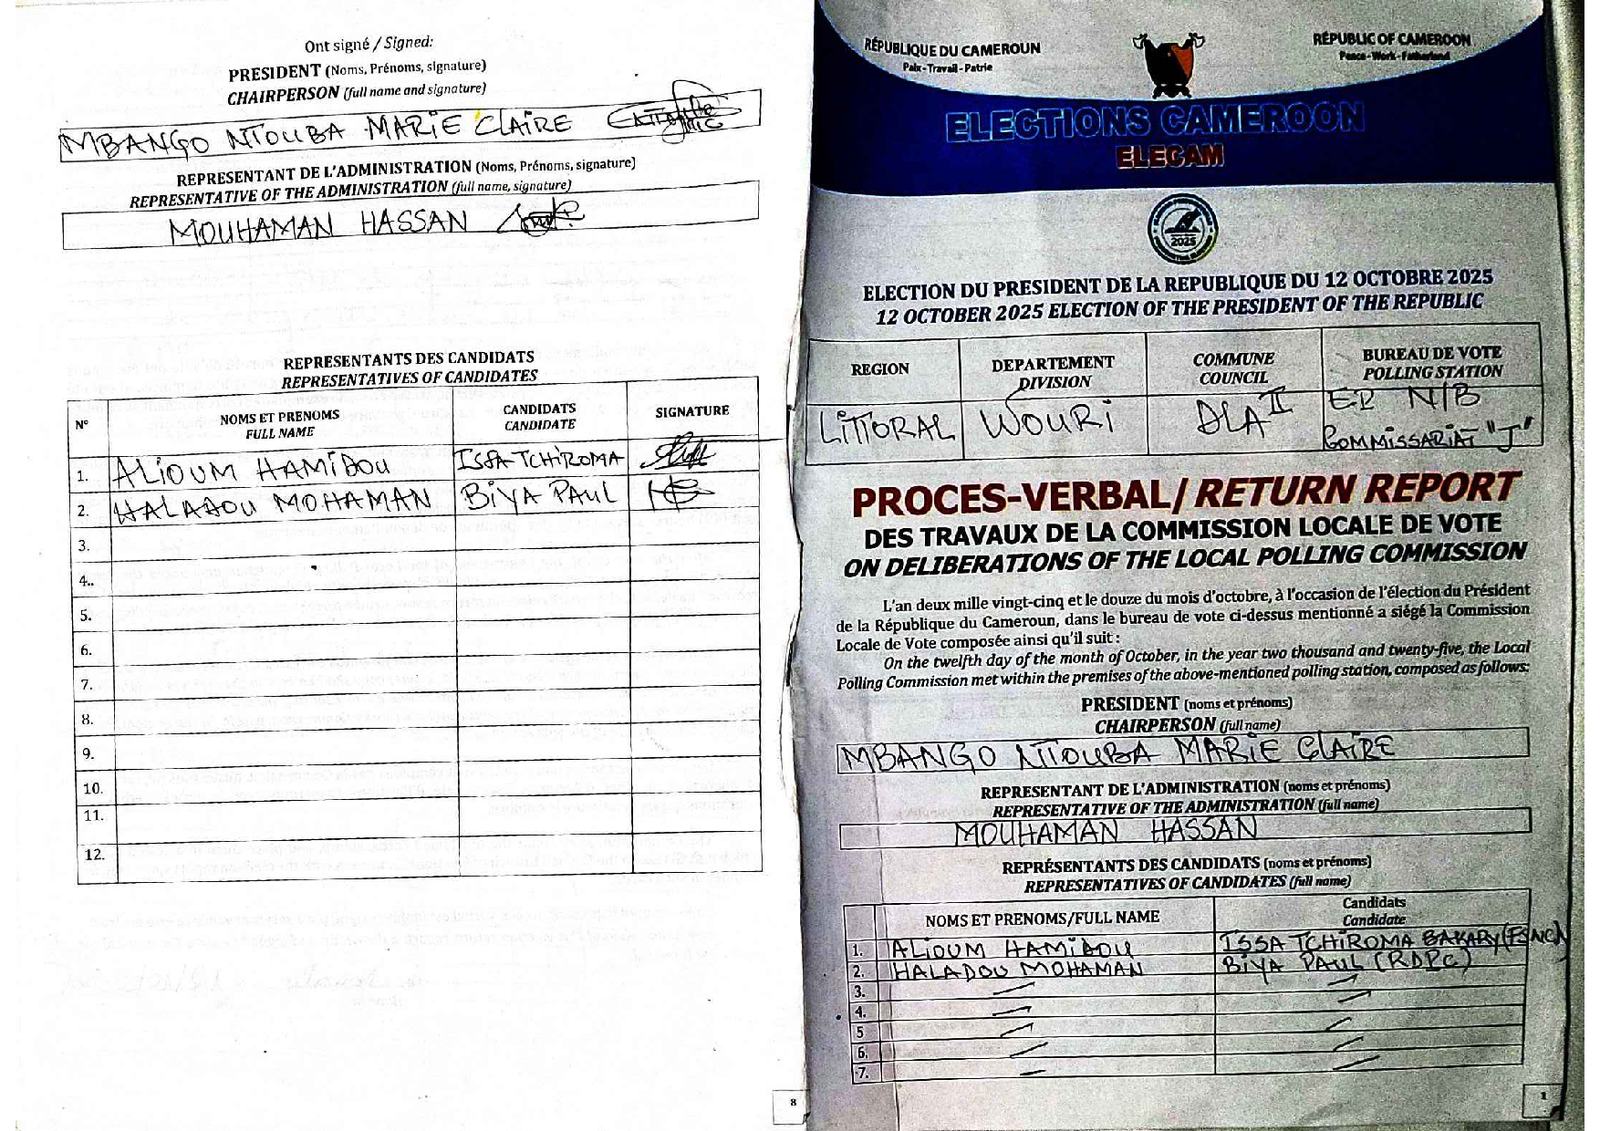 Ont signé / Signed:
PRESIDENT (Noms, Prénoms, signature)
CHAIRPERSON (full name and signature)
MBANGO NTOUBA MARIE CLAIRE
REPRESENTANT DE L'ADMINISTRATION (Noms, Prénoms, signature)
REPRESENTATIVE OF THE ADMINISTRATION (full name, signature)
MOUHAMAN HASSAN
REPRESENTANTS DES CANDIDATS
REPRESENTATIVES OF CANDIDATES
N° NOMS ET PRENOMS CANDIDATS SIGNATURE
FULL NAME CANDIDATE
1. ALIOUM HAMIDOU ISSA TCHIROMA
2. HALADOU MOHAMAN BIYA PAUL
3.
4..
5.
6.
7.
8.
9.
10.
11.
12.
8
RÉPUBLIQUE DU CAMEROUN
Paix - Travail - Patrie
REPUBLIC OF CAMEROON
Peace - Work - Fatherland
ELECTIONS CAMEROON
ELECAM
2025
ELECTION DU PRESIDENT DE LA REPUBLIQUE DU 12 OCTOBRE 2025
12 OCTOBER 2025 ELECTION OF THE PRESIDENT OF THE REPUBLIC
REGION DEPARTEMENT COMMUNE BUREAU DE VOTE
DIVISION COUNCIL POLLING STATION
LITTORAL WOURI DLA II EP N/B
COMMISSARIAT "J"
PROCES-VERBAL/ RETURN REPORT
DES TRAVAUX DE LA COMMISSION LOCALE DE VOTE
ON DELIBERATIONS OF THE LOCAL POLLING COMMISSION
L'an deux mille vingt-cinq et le douze du mois d'octobre, à l'occasion de l'élection du Président
de la République du Cameroun, dans le bureau de vote ci-dessus mentionné a siégé la Commission
Locale de Vote composée ainsi qu'il suit :
On the twelfth day of the month of October, in the year two thousand and twenty-five, the Local
Polling Commission met within the premises of the above-mentioned polling station, composed as follows:
PRESIDENT (noms et prénoms)
CHAIRPERSON (full name)
MBANGO NTOUBA MARIE CLAIRE
REPRESENTANT DE L'ADMINISTRATION (noms et prénoms)
REPRESENTATIVE OF THE ADMINISTRATION (full name)
MOUHAMAN HASSAN
REPRÉSENTANTS DES CANDIDATS (noms et prénoms)
REPRESENTATIVES OF CANDIDATES (full name)
NOMS ET PRENOMS/FULL NAME Candidats
Candidate
1. ALIOUM HAMIDOU ISSA TCHIROMA BAKARY (FSNC)
2. HALADOU MOHAMAN BIYA PAUL (RDPC)
3.
4.
5
6.
7.
1